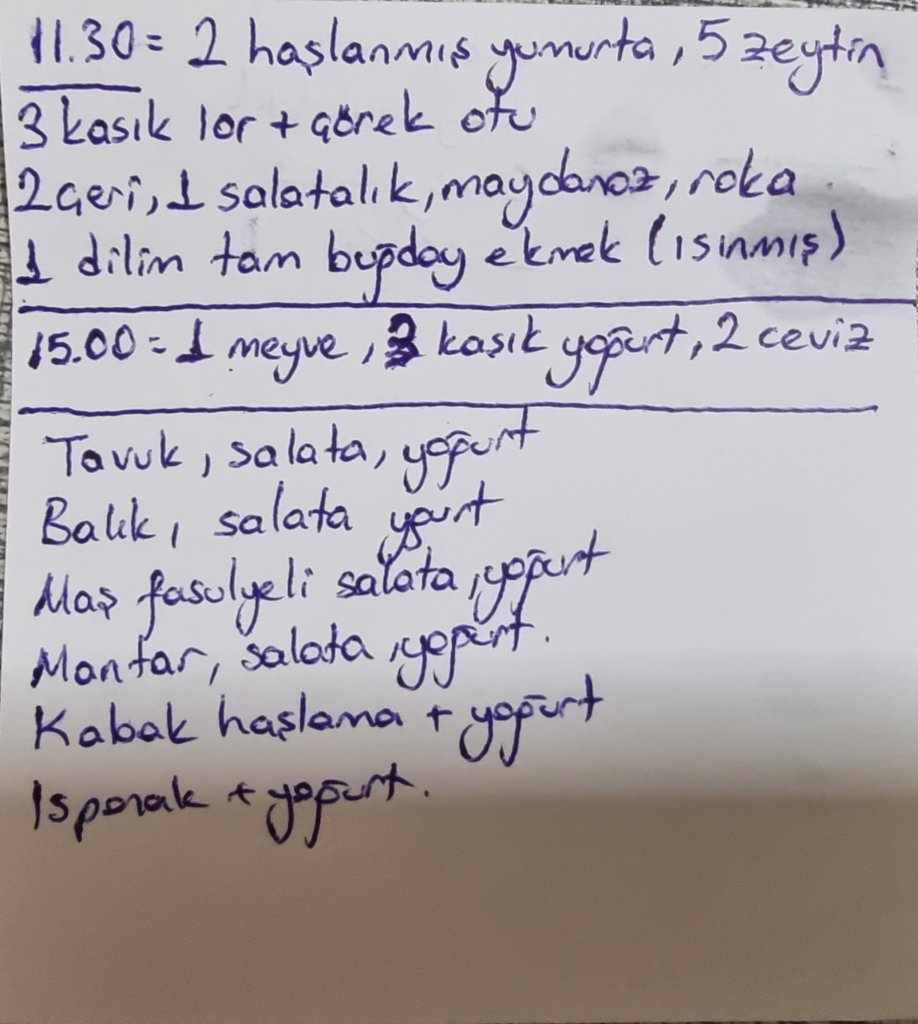 11.30 = 2 haşlanmış yumurta, 5 zeytin
3 kaşık lor + çörek otu
2 çeri, 1 salatalık, maydanoz, roka
1 dilim tam buğday ekmek (ısınmış)
15.00 = 1 meyve, 3 kaşık yoğurt, 2 ceviz
Tavuk, salata, yoğurt
Balık, salata yğurt
Maş fasulyeli salata, yoğurt
Mantar, salata, yoğurt.
Kabak haşlama + yoğurt
Ispanak + yoğurt.